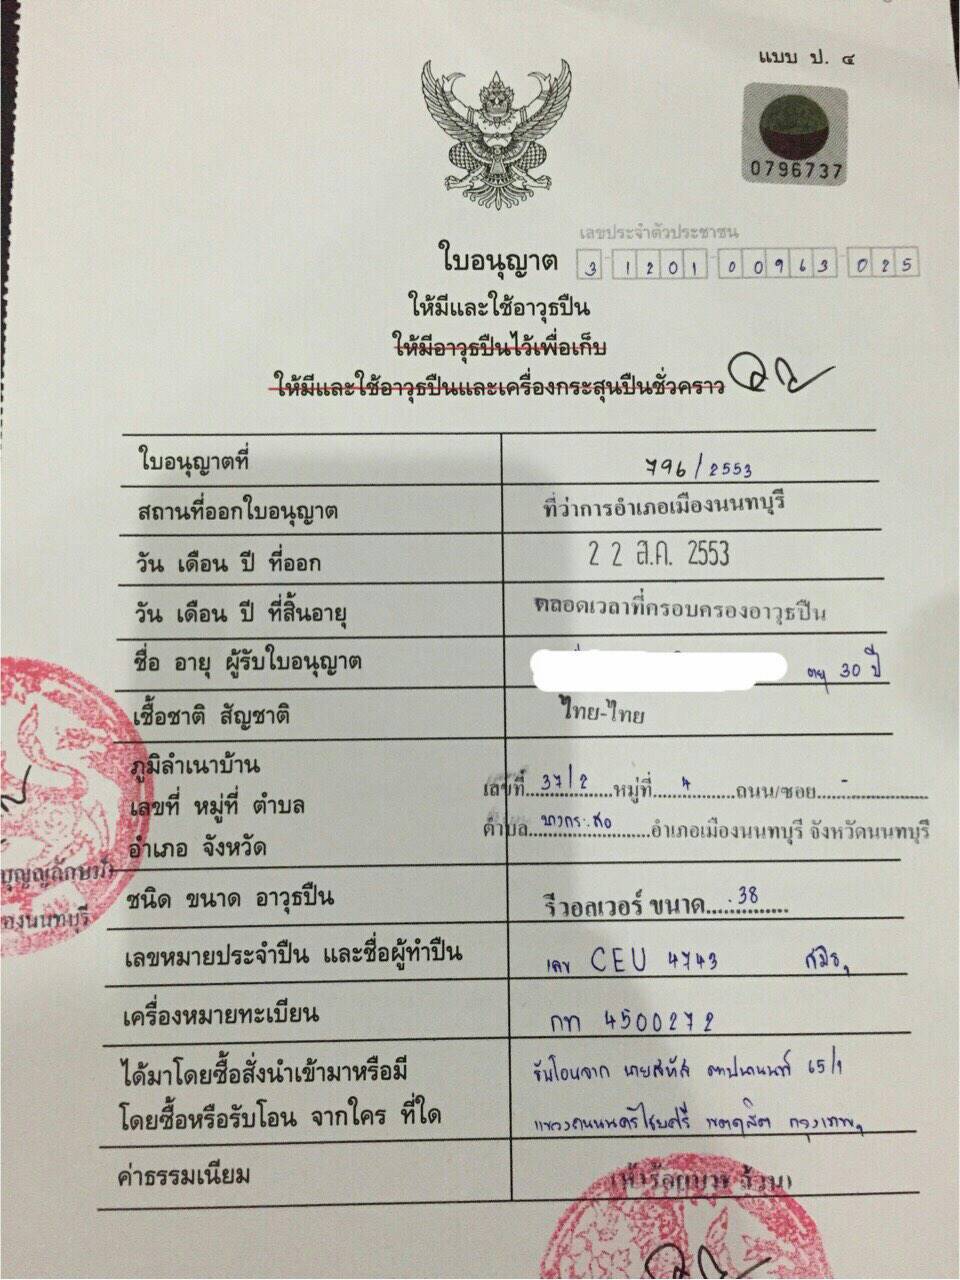 แบบ ป. ๔
0796737
เลขประจำตัวประชาชน
ใบอนุญาต 3 1201 00963 025
ให้มีและใช้อาวุธปืน
ให้มีอาวุธปืนไว้เพื่อเก็บ
ให้มีและใช้อาวุธปืนและเครื่องกระสุนปืนชั่วคราว
ใบอนุญาตที่ 796/2553
สถานที่ออกใบอนุญาต ที่ว่าการอำเภอเมืองนนทบุรี
วัน เดือน ปี ที่ออก 22 ส.ค. 2553
วัน เดือน ปี ที่สิ้นอายุ ตลอดเวลาที่ครอบครองอาวุธปืน
ชื่อ อายุ ผู้รับใบอนุญาต อายุ 30 ปี
เชื้อชาติ สัญชาติ ไทย-ไทย
ภูมิลำเนาบ้าน
เลขที่ หมู่ที่ ตำบล
อำเภอ จังหวัด
เลขที่ 37/2 หมู่ที่ 4 ถนน/ซอย -
ตำบล บางกระสอ อำเภอเมืองนนทบุรี จังหวัดนนทบุรี
ชนิด ขนาด อาวุธปืน รีวอลเวอร์ ขนาด .38
เลขหมายประจำปืน และชื่อผู้ทำปืน เลข CEU 4743 สมิธฯ
เครื่องหมายทะเบียน กท 4500272
ได้มาโดยซื้อสั่งนำเข้ามาหรือมี
โดยซื้อหรือรับโอน จากใคร ที่ใด
รับโอนจาก นาย 65/1
แขวงถนนนครไชยศรี เขตดุสิต กรุงเทพฯ
ค่าธรรมเนียม (ห้าร้อยบาท ล้วน)
องนนทบุรี